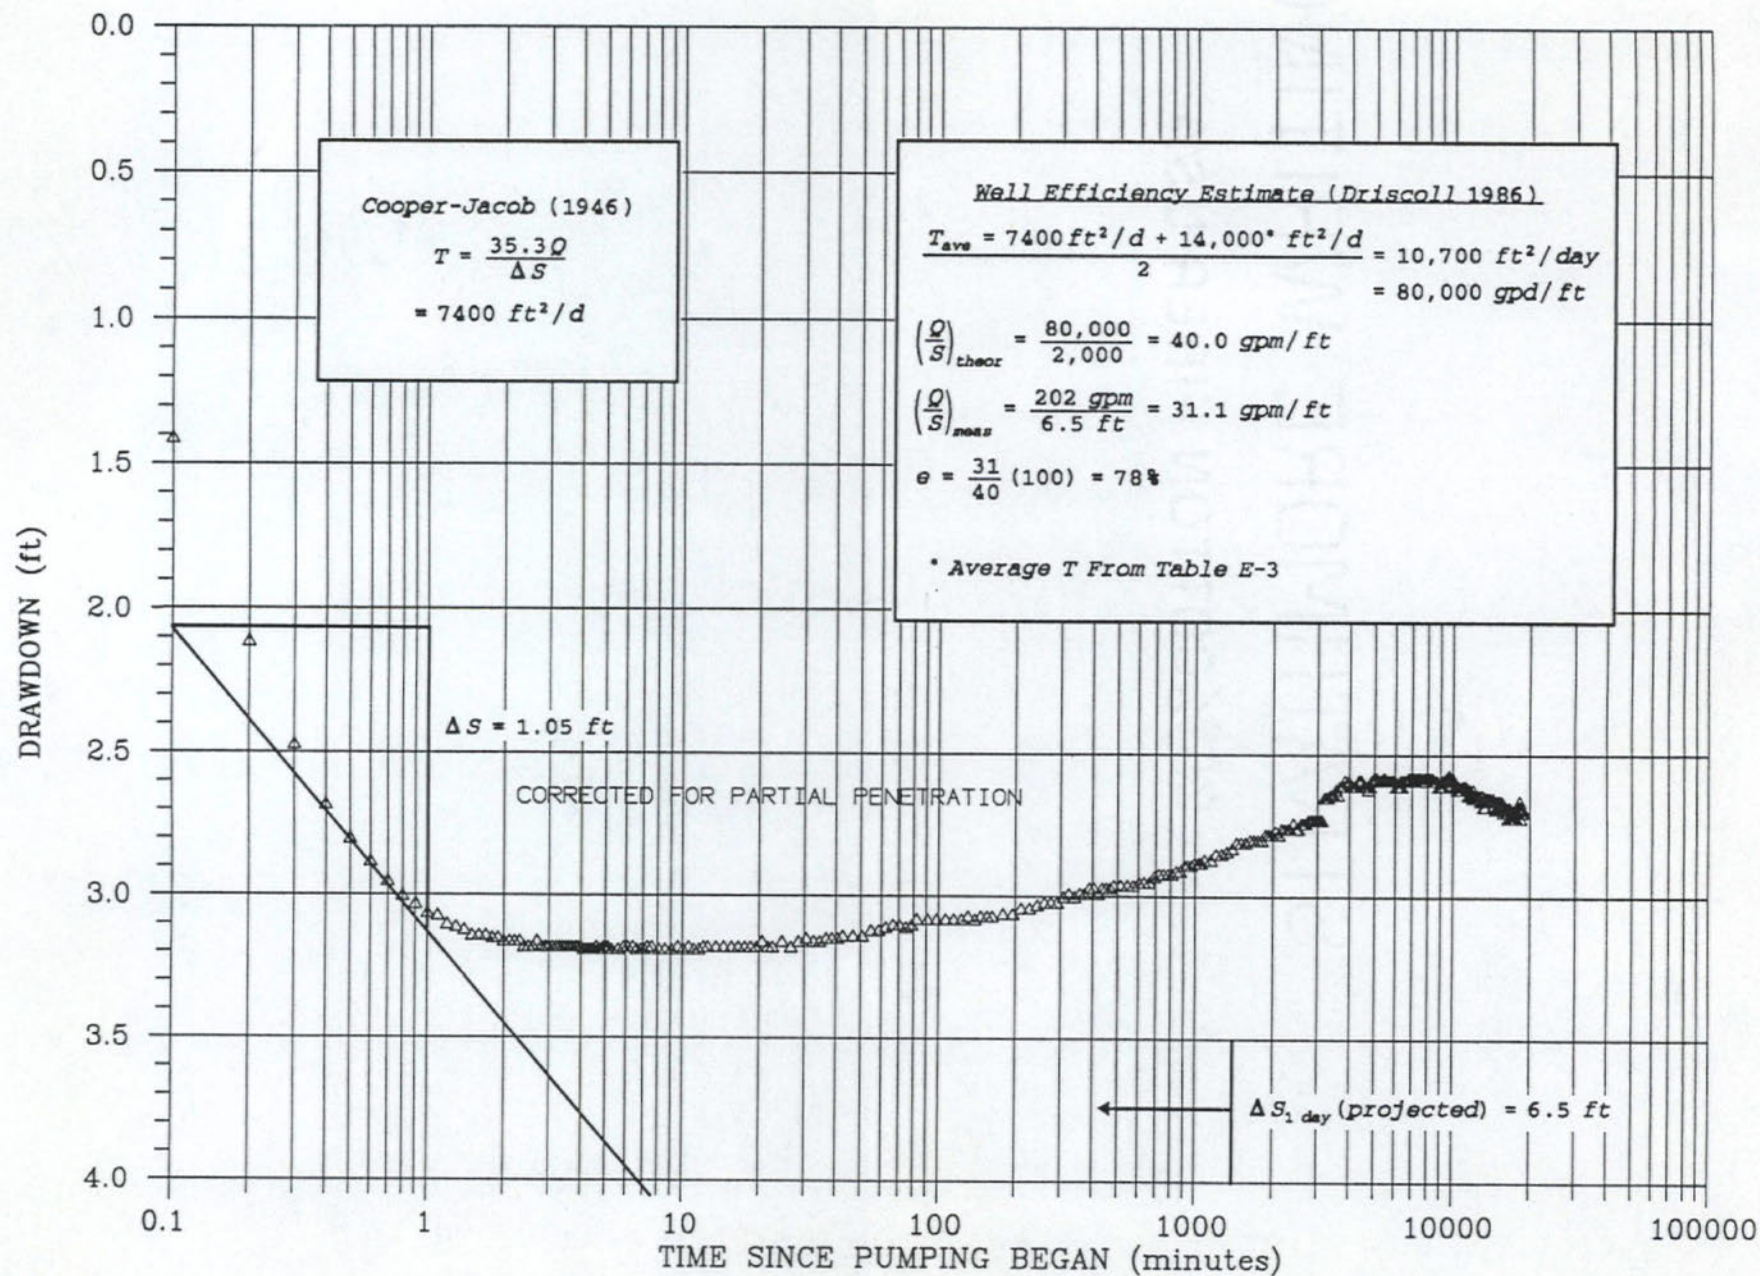 0.0
0.5
1.0
1.5
2.0
2.5
3.0
3.5
4.0
DRAWDOWN (ft)
Cooper-Jacob (1946)
T = 35.3Q / ΔS
= 7400 ft²/d
Well Efficiency Estimate (Driscoll 1986)
T_ave = 7400 ft²/d + 14,000* ft²/d / 2 = 10,700 ft²/day
= 80,000 gpd/ft
(Q/S)theor = 80,000 / 2,000 = 40.0 gpm/ft
(Q/S)meas = 202 gpm / 6.5 ft = 31.1 gpm/ft
e = 31/40 (100) = 78%
* Average T From Table E-3
ΔS = 1.05 ft
CORRECTED FOR PARTIAL PENETRATION
ΔS₁ day (projected) = 6.5 ft
0.1 1 10 100 1000 10000 100000
TIME SINCE PUMPING BEGAN (minutes)